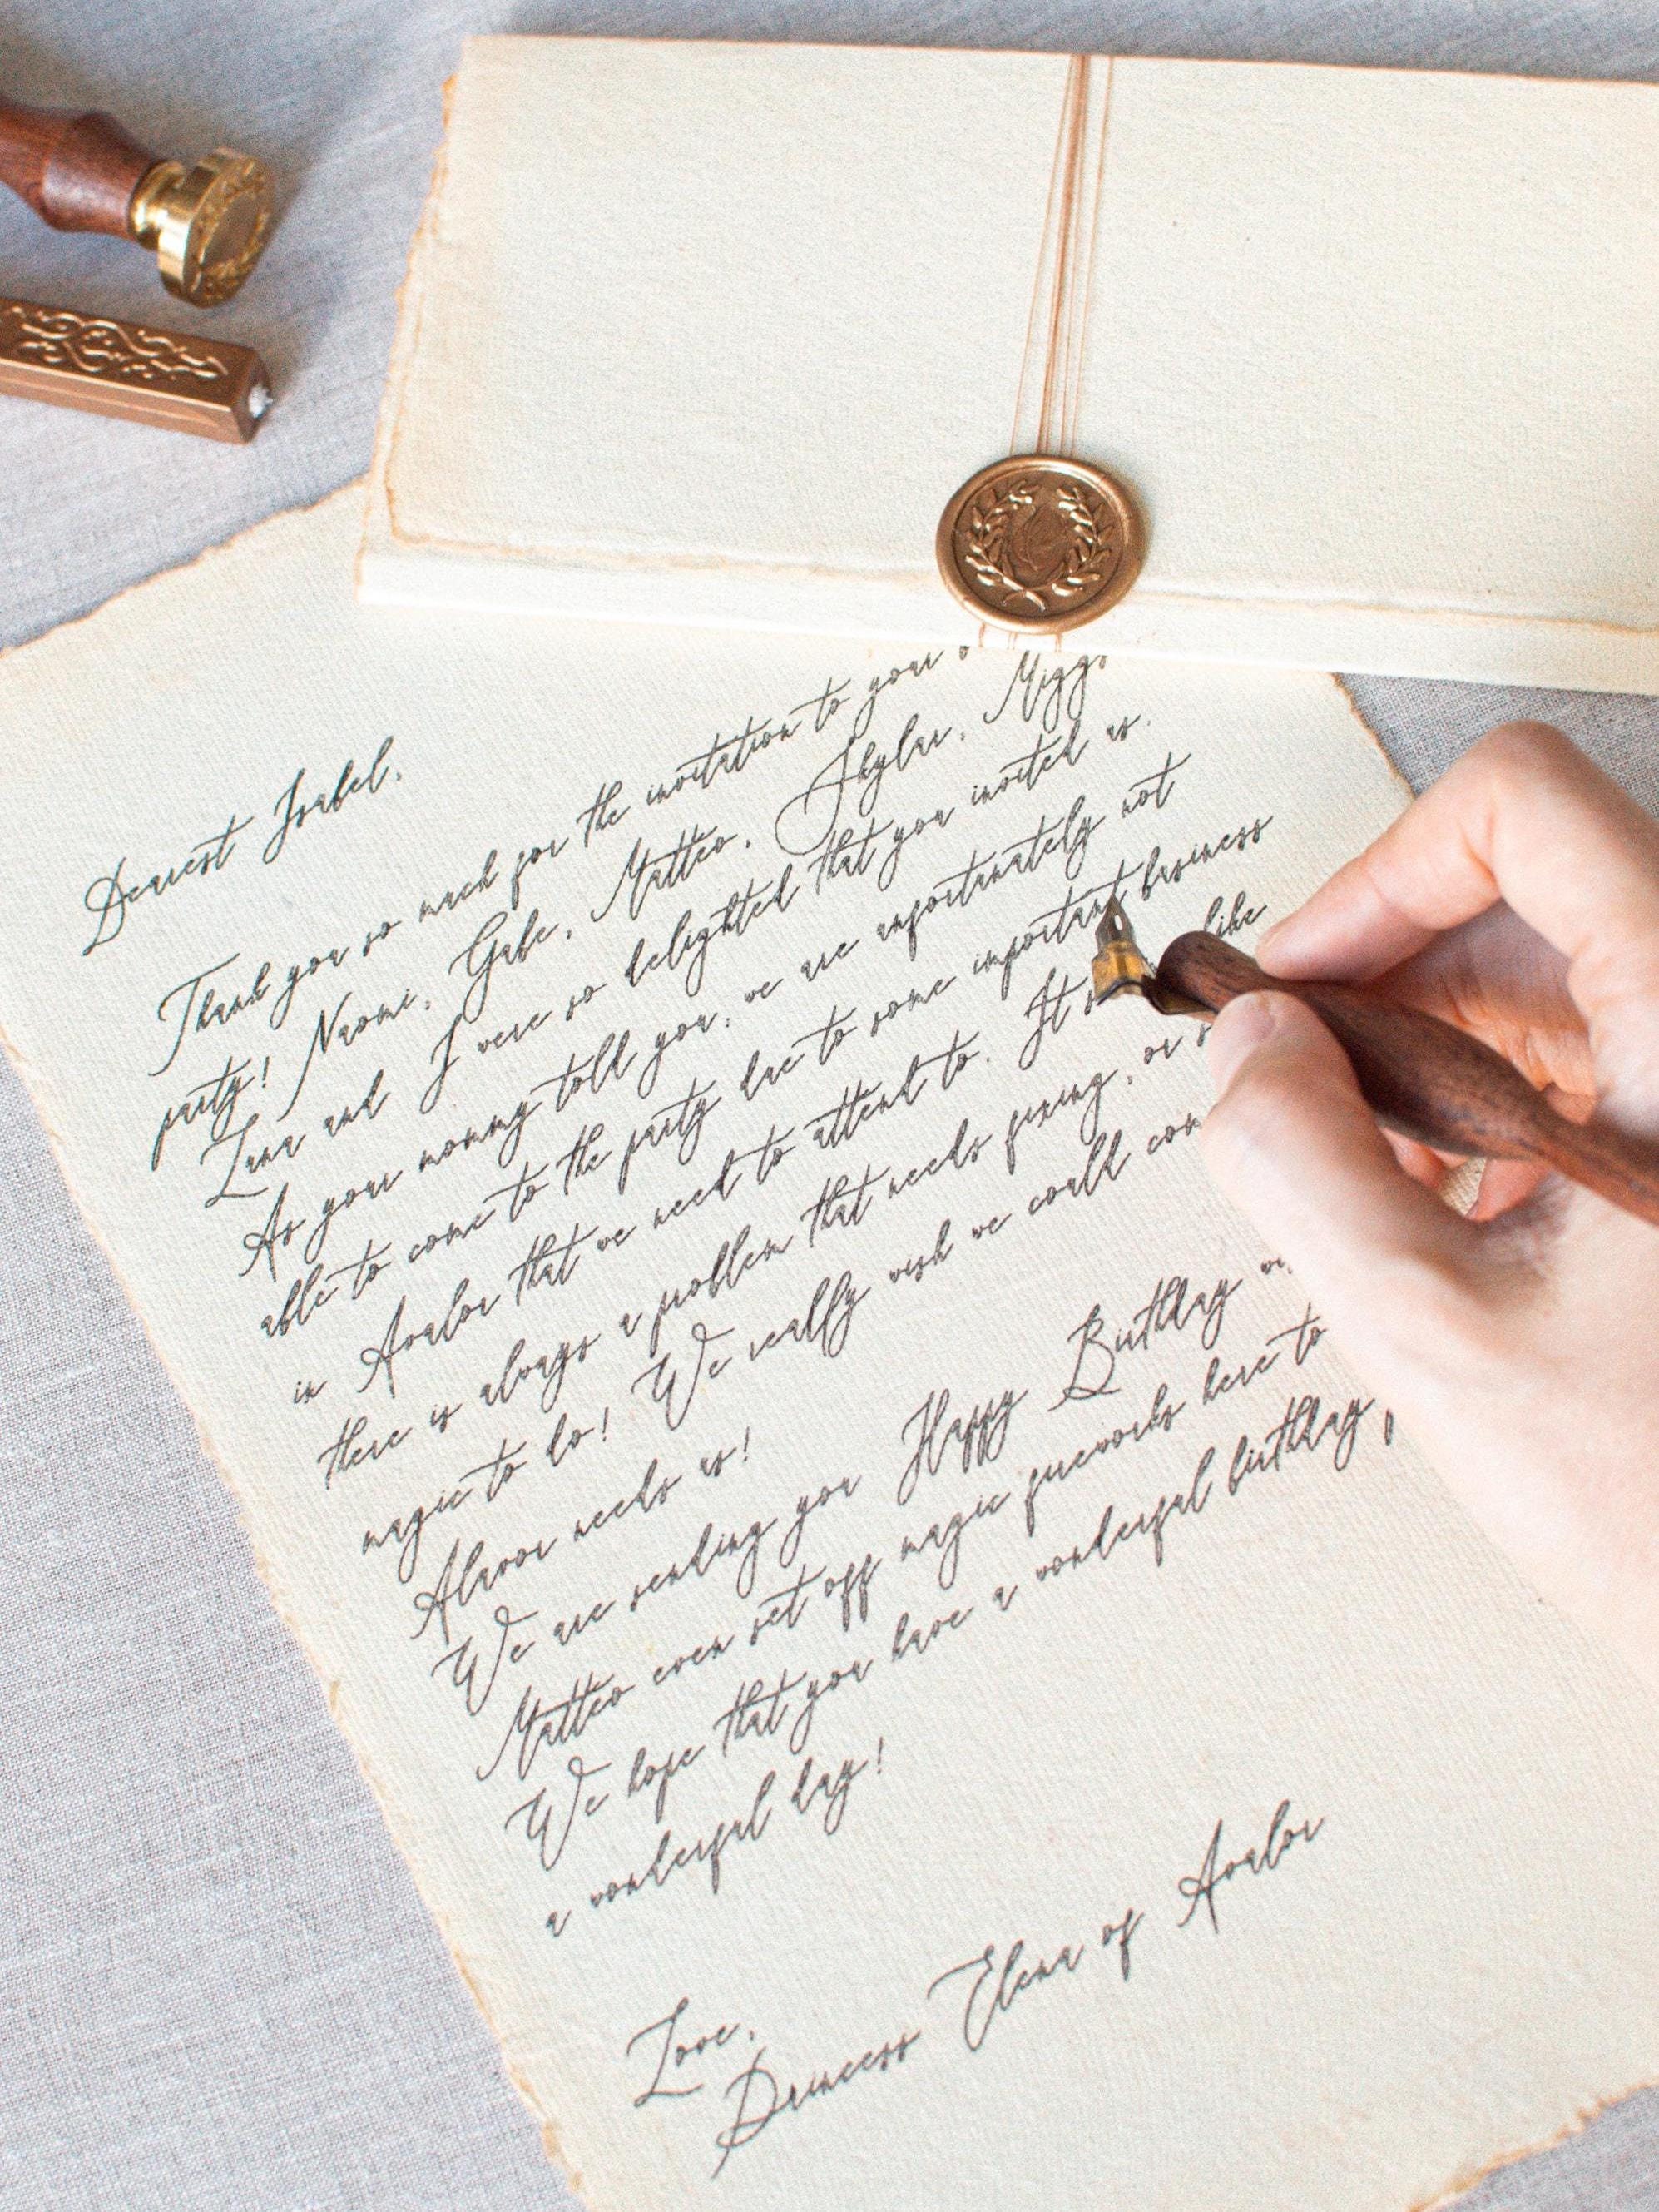 Dearest Isabel,
Thank you so much for the invitation to your
party! Naomi, Gabe, Matteo, Skylar, Migs
Luna and I were so delighted that you invited us.
As your mommy told you, we are unfortunately not
able to come to the party due to some important business
in Avalor that we need to attend to. It like
there is always a problem that needs fixing, or
magic to do! We really wish we could
Alavor needs us!
We are sending you Happy Birthday
Matteo even set off magic fireworks here to
We hope that you have a wonderful birthday,
a wonderful day!
Love,
Princess Elena of Avalor